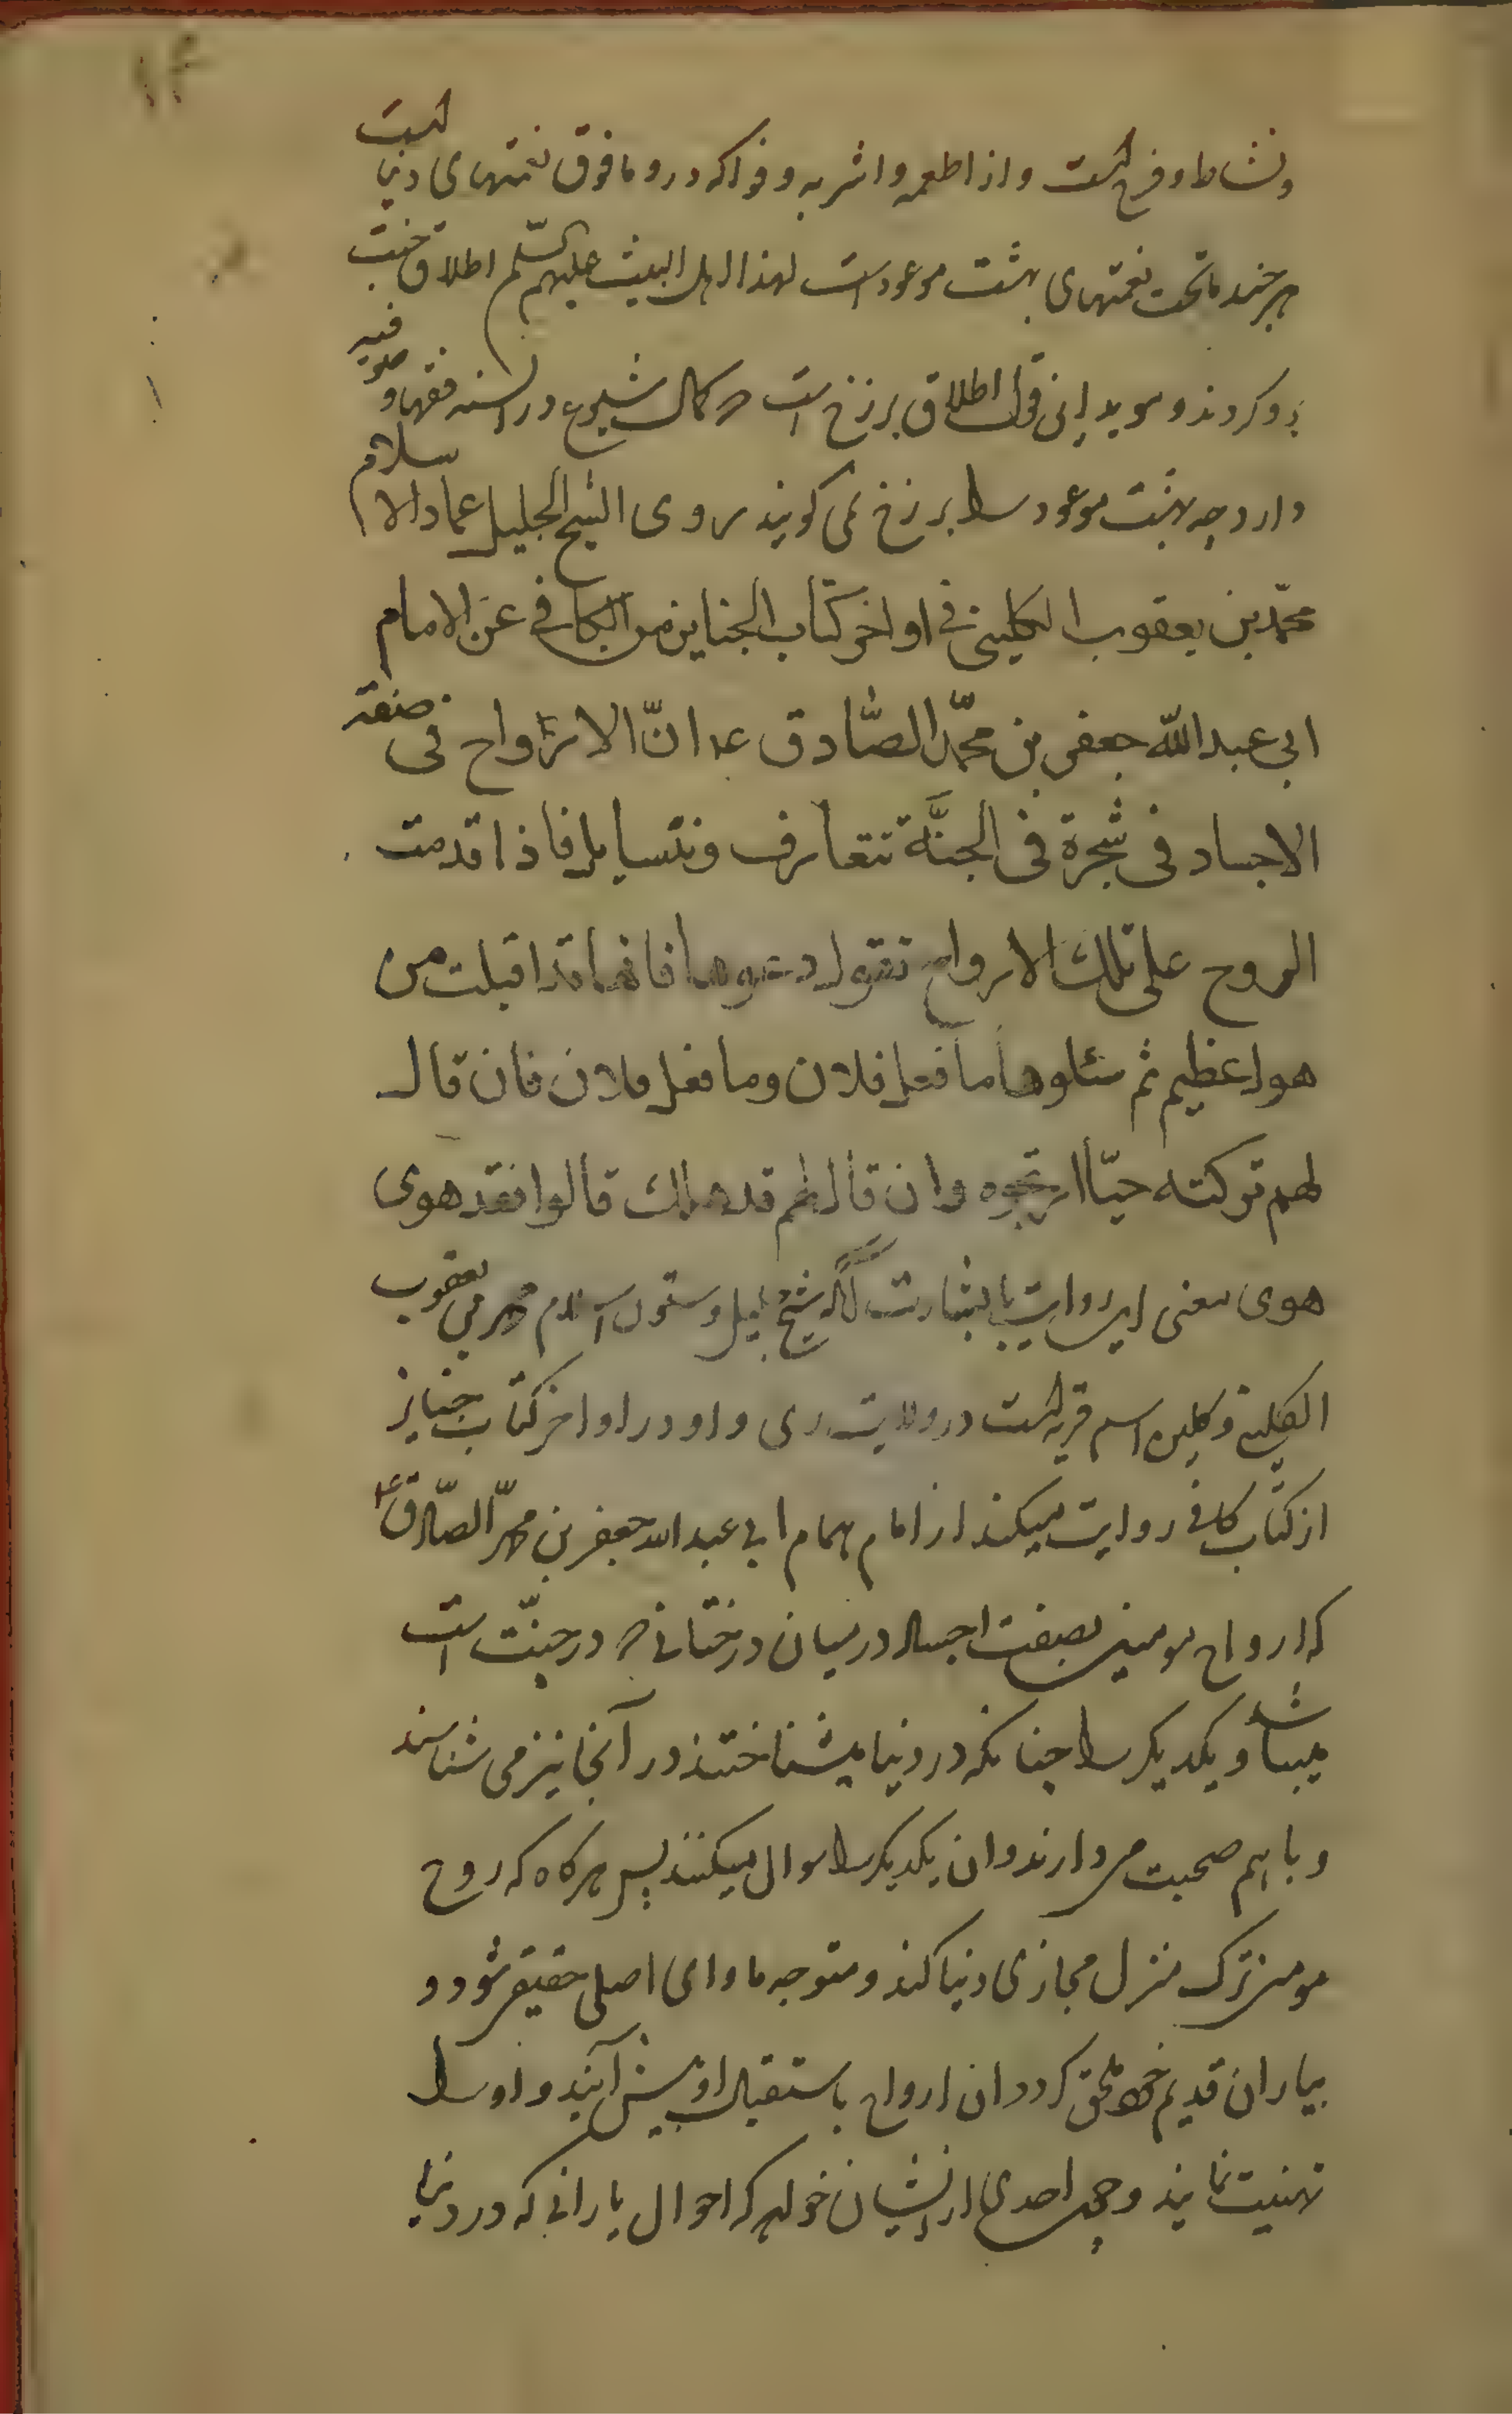 ۱۴
ونشاط و فرح است و از اطعمه و اشربه و فواکه در و مافوق نعمتهای دنیا است
هر چند ماتحت نعمتهای بهشت موعود است لهذا اهل البیت علیهم السلم اطلاق جنت
برو کردند و موید این قول اطلاق برزخ است که کمال شیوع در السنه فقها و صوفیه
دارد چه بهشت موعود را برزخ نمی کویند روی الشیخ الجلیل عماد الاسلام
محمّد بن یعقوب الکلینی فی اواخر کتاب الجنایز من الکافی عن الامام
ابی عبد الله جعفر بن محمّد الصّادق ع انّ الارواح فی صفة
الاجساد فی شجرة فی الجنّة تتعارف وتتسایل فاذا قدمت
الروح علی تلک الارواح تقول دعوها فانها قد اقبلت من
هول عظیم ثم سئلوها ما فعل فلان وما فعل فلان فان قالـ
لهم ترکته حیّا ارتجوه وان قال لهم قد هلک قالوا فقد هوی
هوی معنی این روایت با بشارت آنکه شیخ جلیل و ستون اسلام محمد بن یعقوب
الکلینی و کلین اسم قریه است در ولایت ری و او در اواخر کتاب جنایز
از کتاب کافی روایت میکند از امام همام ابی عبد الله جعفر بن محمّد الصّادق ع
که ارواح مومنین بصفت اجساد در میان درختانی که در جنّت است
میباشد و یکدیکر را چنانکه در دنیا میشناختند در آنجا نیز می شناسند
و با هم صحبت می دارند و ان یکدیکر را سوال میکنند پس هرکاه که روح
مومن ترک منزل مجازی دنیا کند و متوجه ماوای اصلی حقیقی شود و
بیاران قدیم خود ملحق کردد ان ارواح باستقبال او پیش آیند و او را
تهنیت نمایند و چون احدی از ایشان خواهد که احوال یارانی که در دنیا